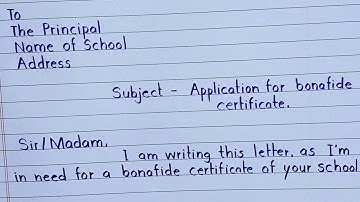 To
The Principal
Name of School
Address
Subject - Application for bonafide
certificate.
Sir/Madam,
I am writing this letter, as I'm
in need for a bonafide certificate of your school